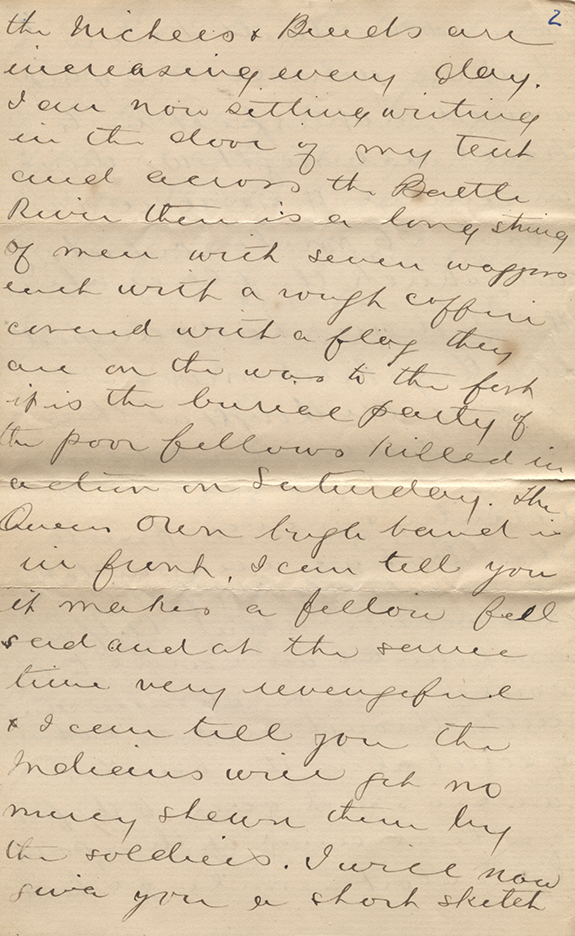 2
the Nichees & Breeds are
increasing every day.
I am now sitting writing
in the door of my tent
and across the Battle
River there is a long string
of men with seven waggons
each with a rough coffin
covered with a flag they
are on the was to the fort
it is the burial party of
the poor fellows killed in
action on Saturday. The
Queens Own bugle band is
in front, I can tell you
it makes a fellow feel
sad and at the same
time very revengeful
& I can tell you the
Indians will get no
mercy shewn them by
the soldiers. I will now
give you a short sketch